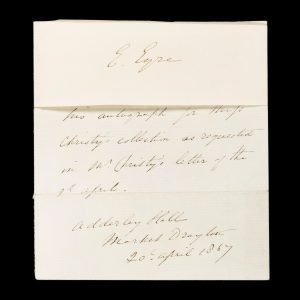 E. Eyre
his autograph for
Christy's collection as requested
in Mr Christy's letter of the
April.
Adderley Hill
Market Drayton
20th April 1867